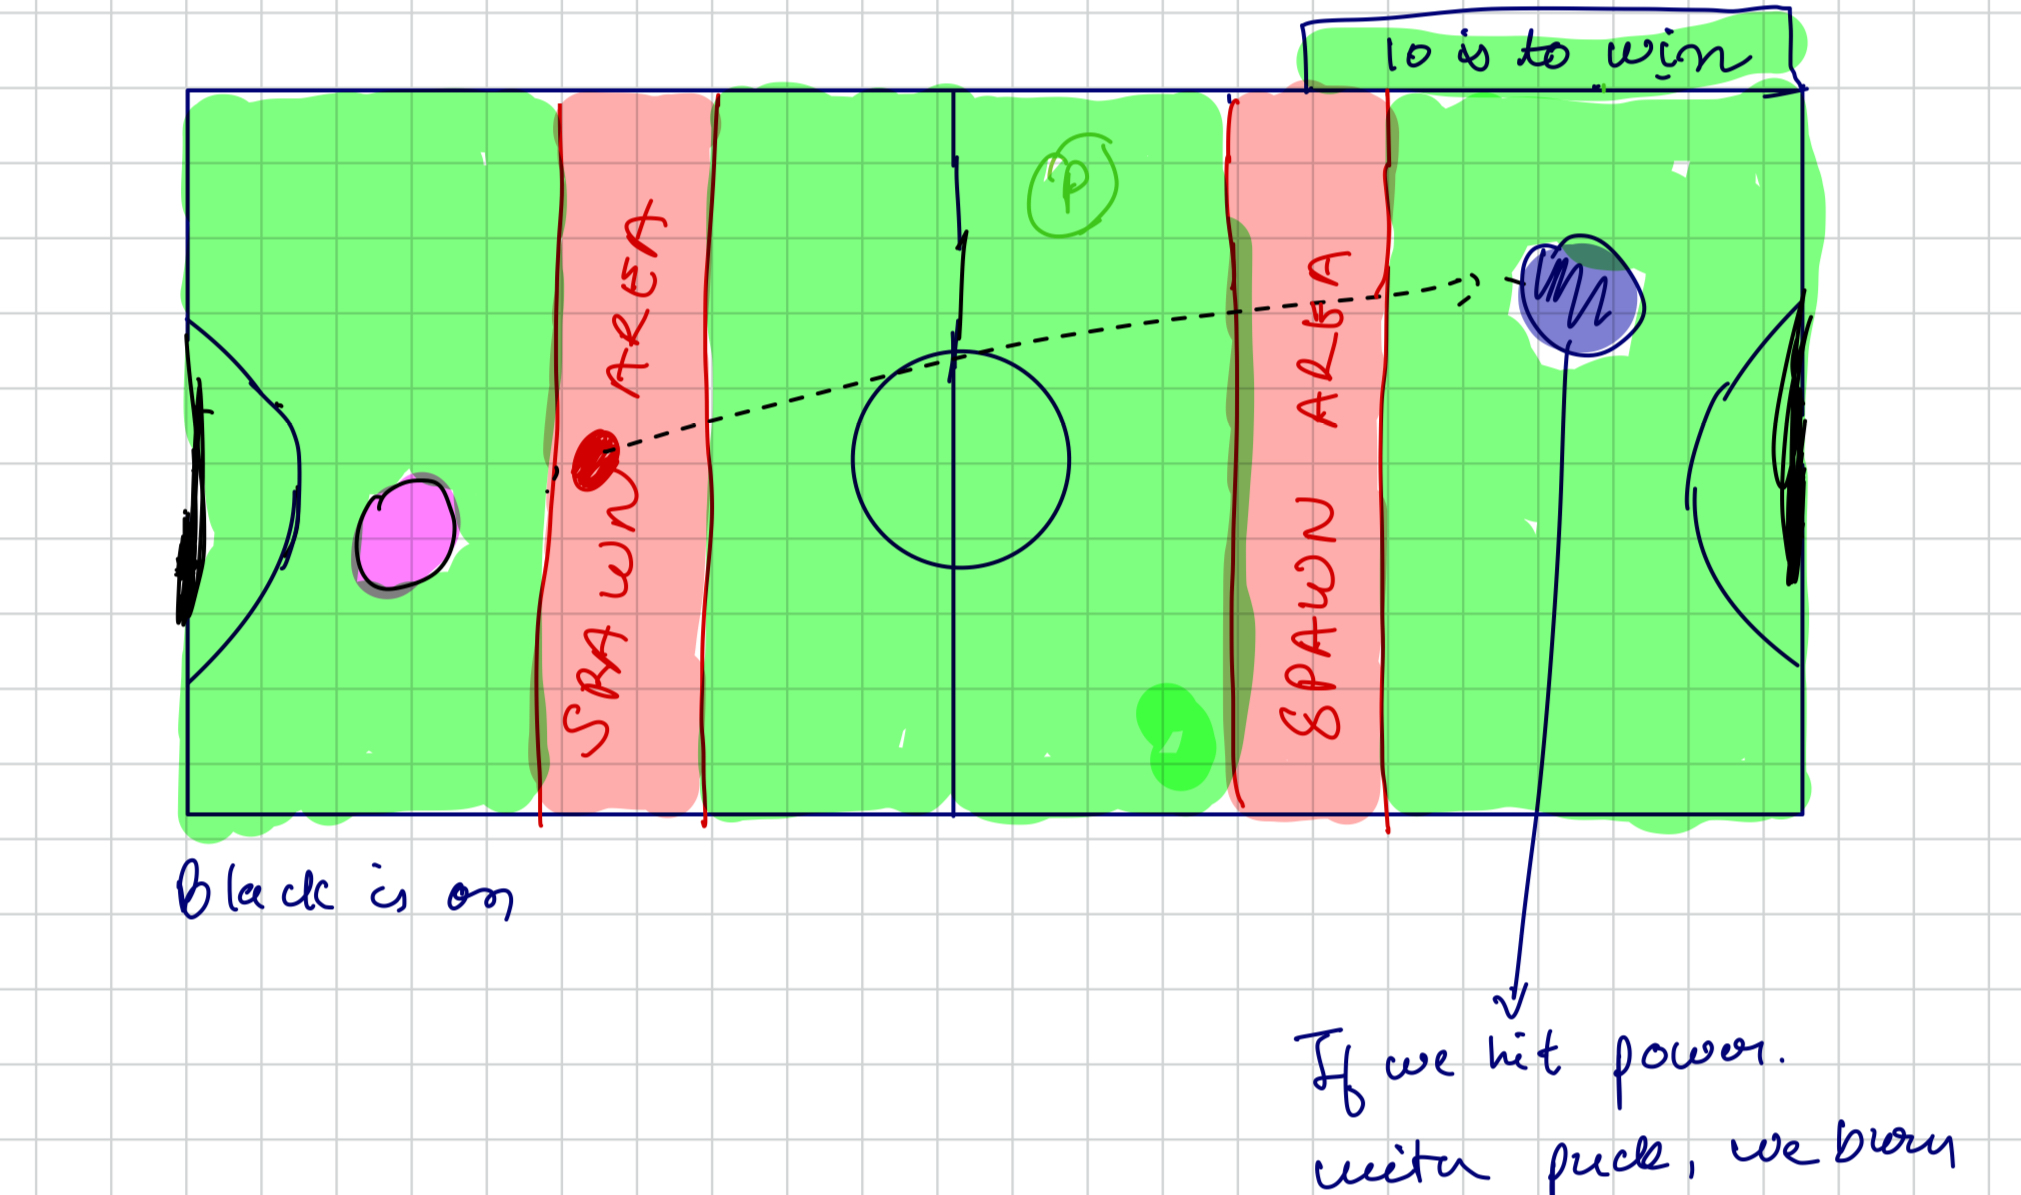 10 is to win
P
SPAWN AREA
SPAWN AREA
Black is on
If we hit power.
with puck, we burn